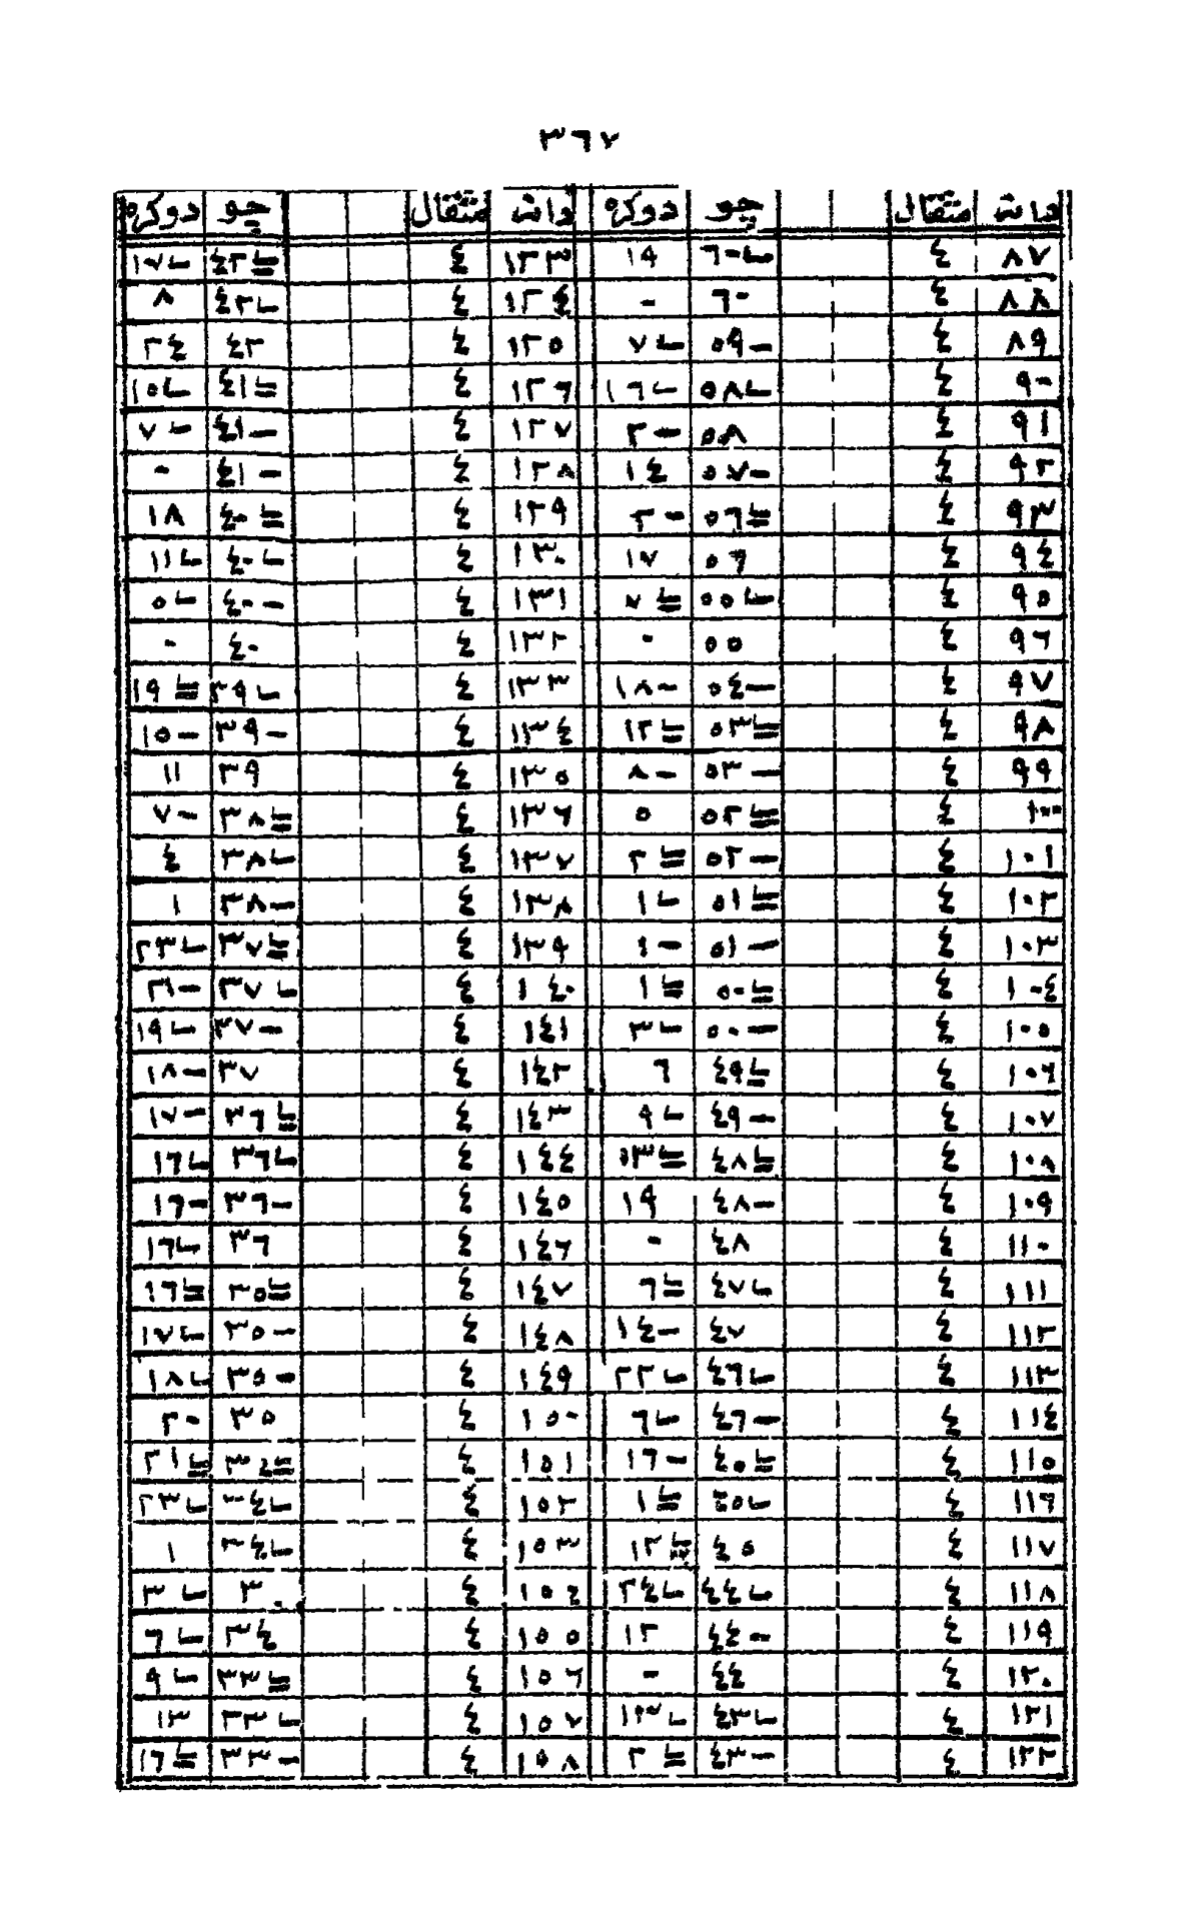 ٣٦٧
دانه مثقال چو دوكره دانه مثقال چو دوكره
٨٧ ٤ ٦٠ ١٩ ١٢٣ ٤ ٤٢ ١٧
٨٨ ٤ ٦٠ ٠ ١٢٤ ٤ ٤٢ ٨
٨٩ ٤ ٥٩- ٧ ١٢٥ ٤ ٤٢ ٢٤
٩٠ ٤ ٥٨ ١٦ ١٢٦ ٤ ٤١ ١٥
٩١ ٤ ٥٨ ٢- ١٢٧ ٤ ٤١- ٧
٩٢ ٤ ٥٧- ١٤ ١٢٨ ٤ ٤١- ٠
٩٣ ٤ ٥٦ ٢- ١٢٩ ٤ ٤٠ ١٨
٩٤ ٤ ٥٦ ١٧ ١٣٠ ٤ ٤٠ ١١
٩٥ ٤ ٥٥ ٧ ١٣١ ٤ ٤٠- ٥
٩٦ ٤ ٥٥ ٠ ١٣٢ ٤ ٤٠ ٠
٩٧ ٤ ٥٤- ١٨- ١٣٣ ٤ ٣٩ ١٩
٩٨ ٤ ٥٣ ١٢ ١٣٤ ٤ ٣٩- ١٥-
٩٩ ٤ ٥٣- ٨- ١٣٥ ٤ ٣٩ ١١
١٠٠ ٤ ٥٢ ٥ ١٣٦ ٤ ٣٨ ٧-
١٠١ ٤ ٥٢- ٢ ١٣٧ ٤ ٣٨ ٤
١٠٢ ٤ ٥١ ١ ١٣٨ ٤ ٣٨- ١
١٠٣ ٤ ٥١- ١- ١٣٩ ٤ ٣٧ ٢٣
١٠٤ ٤ ٥٠ ١ ١٤٠ ٤ ٣٧ ٢١-
١٠٥ ٤ ٥٠- ٣ ١٤١ ٤ ٣٧- ١٩
١٠٦ ٤ ٤٩ ٦ ١٤٢ ٤ ٣٧ ١٨-
١٠٧ ٤ ٤٩- ٩ ١٤٣ ٤ ٣٦ ١٧-
١٠٨ ٤ ٤٨ ١٣ ١٤٤ ٤ ٣٦ ١٦
١٠٩ ٤ ٤٨- ١٩ ١٤٥ ٤ ٣٦- ١٦-
١١٠ ٤ ٤٨ ٠ ١٤٦ ٤ ٣٦ ١٦
١١١ ٤ ٤٧ ٦ ١٤٧ ٤ ٣٥ ١٦
١١٢ ٤ ٤٧ ١٤- ١٤٨ ٤ ٣٥- ١٧
١١٣ ٤ ٤٦ ٢٢ ١٤٩ ٤ ٣٥- ١٨
١١٤ ٤ ٤٦- ٦ ١٥٠ ٤ ٣٥ ٢٠
١١٥ ٤ ٤٥ ١٦- ١٥١ ٤ ٣٤ ٢١
١١٦ ٤ ٤٥ ١ ١٥٢ ٤ ٣٤ ٢٣
١١٧ ٤ ٤٥ ١٢ ١٥٣ ٤ ٣٤ ١
١١٨ ٤ ٤٤ ٢٤ ١٥٤ ٤ ٣ ٣
١١٩ ٤ ٤٤- ١٢ ١٥٥ ٤ ٣٤ ٦
١٢٠ ٤ ٤٤ ٠ ١٥٦ ٤ ٣٣ ٩
١٢١ ٤ ٤٣ ١٣ ١٥٧ ٤ ٣٣ ١٣
١٢٢ ٤ ٤٣- ٢ ١٥٨ ٤ ٣٣- ١٦